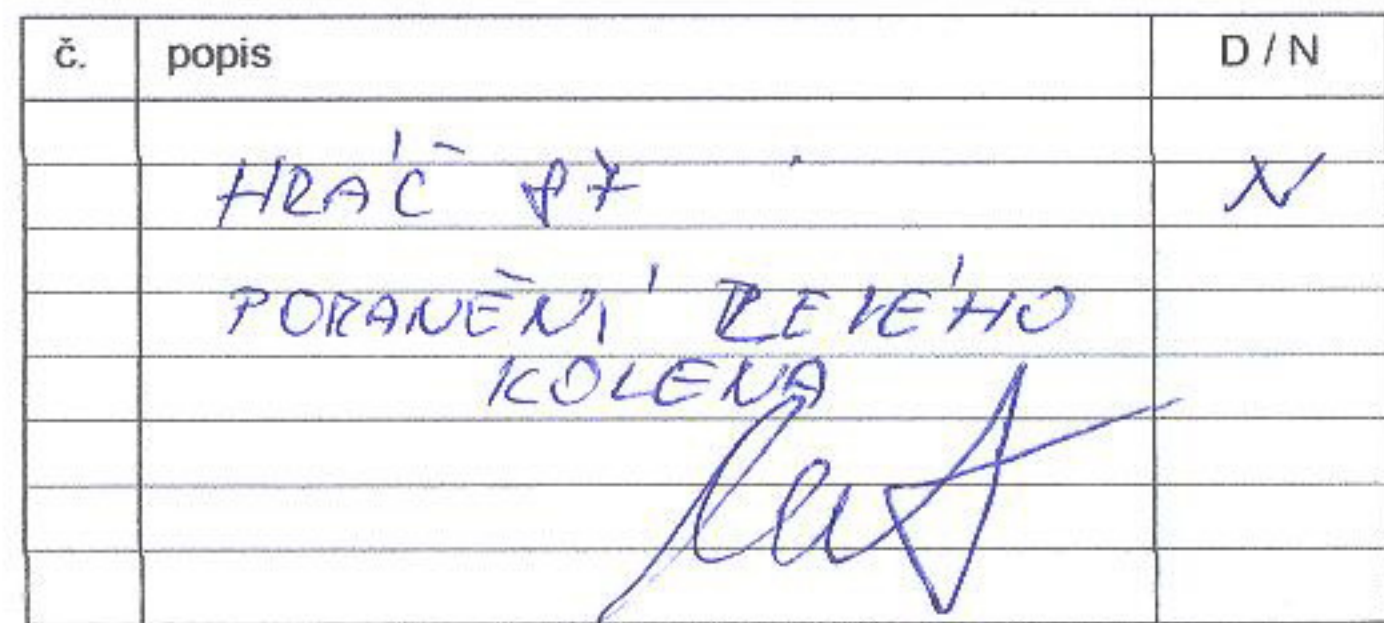 č. popis D / N
HRÁČ 87 N
PORANĚNÍ LEVÉHO
KOLENA